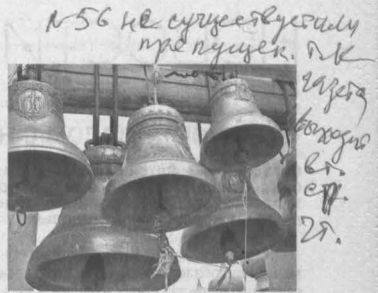 №56 не существует или
пропущен. т.к
газета
выходит
вт.
ср.
чт.